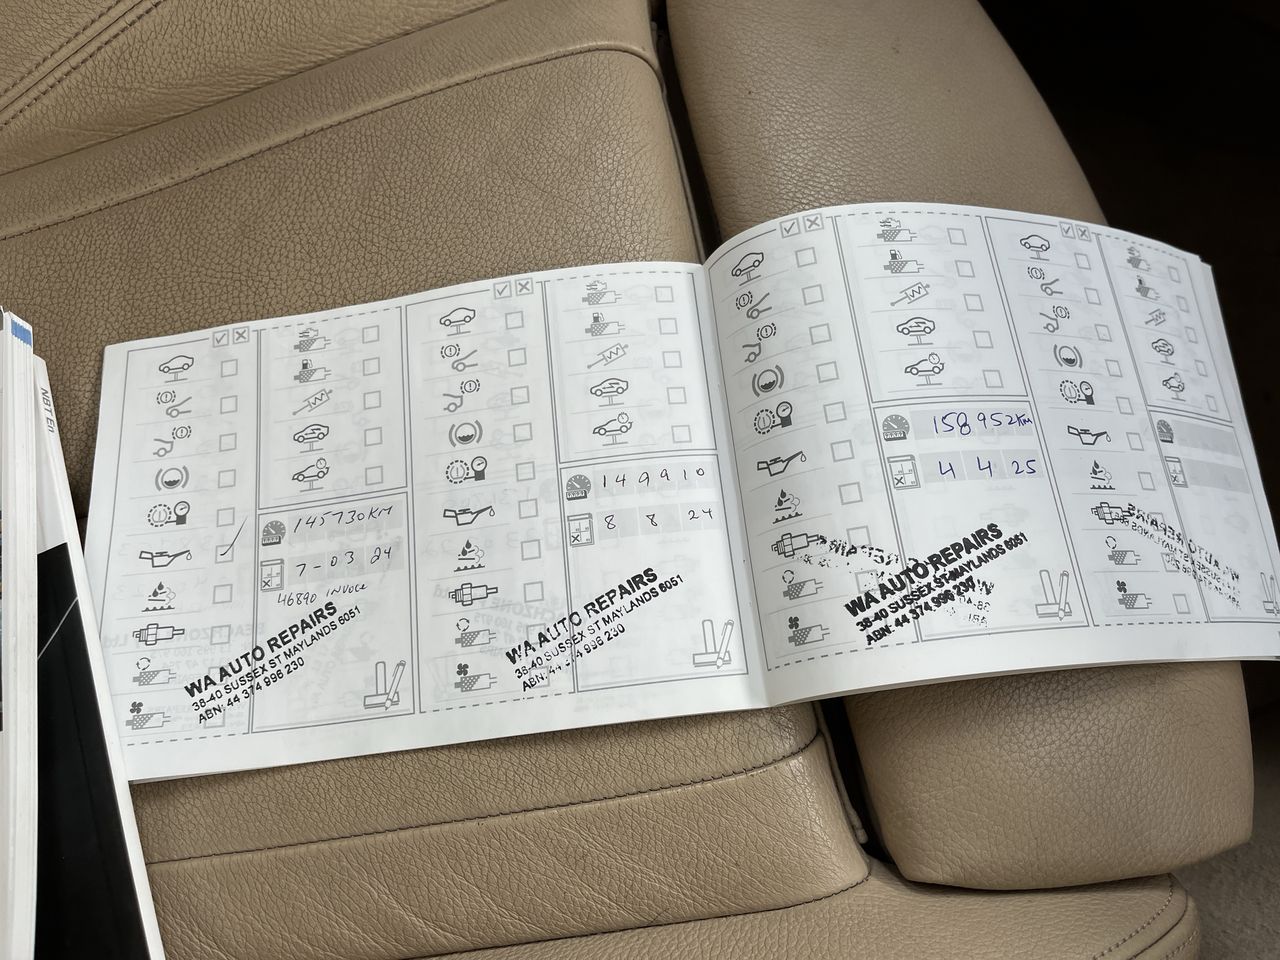 NBT En
145730KM
7-03 24
46890 INVOICE
WA AUTO REPAIRS
38-40 SUSSEX ST MAYLANDS 6051
ABN: 44 374 996 230
149910
8 8 24
WA AUTO REPAIRS
38-40 SUSSEX ST MAYLANDS 6051
ABN: 44 374 996 230
158952Km
4 4 25
WA AUTO REPAIRS
38-40 SUSSEX ST MAYLANDS 6051
ABN: 44 374 996 230